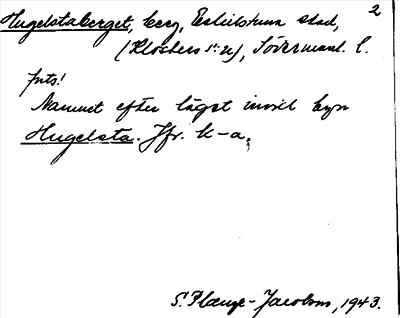 Hugelstaberget, berg, Eskilstuna stad, 2
(Klosters sn), Södermanl. l.
Juts!
Namnet efter läget invid byn
Hugelsta. Jfr. k-a.
S. Plange-Jacobson, 1943.